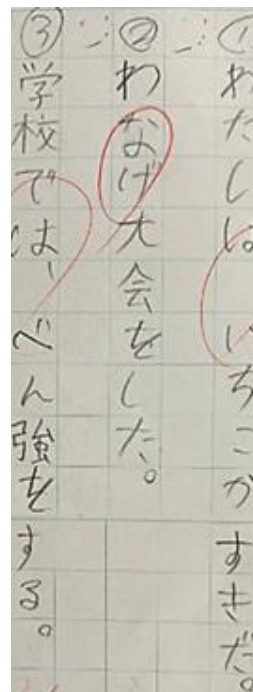 ①わたしは、いちごがすきだ。
②わなげ大会をした。
③学校では、べん強をする。